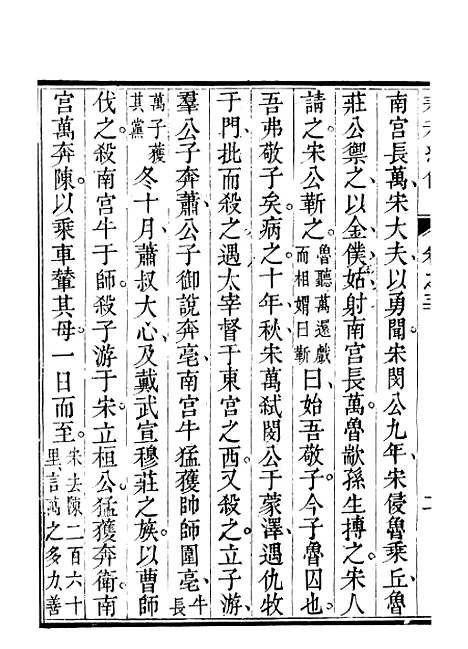 南宫長萬、宋大夫、以勇聞。宋閔公九年、宋侵魯乘丘、魯
莊公禦之、以金僕姑射南宫長萬、魯歂孫生搏之。宋人
請之、宋公靳之。魯聽萬還戲而相媚曰靳曰、始吾敬子、今子魯囚也。
吾弗敬子矣。病之。十年、秋、宋萬弑閔公于蒙澤、遇仇牧
于門、批而殺之、遇太宰督于東宫之西、又殺之、立子游、
羣公子奔蕭、公子御說奔亳、南宫牛猛獲帥師圍亳、牛長
萬子獲其黨冬、十月、蕭叔大心及戴武宣穆莊之族、以曹師
伐之、殺南宫牛于師。殺子游于宋、立桓公、猛獲奔衛、南
宫萬奔陳、以乘車輦其母、一日而至。宋去陳二百六十里言萬之多力善